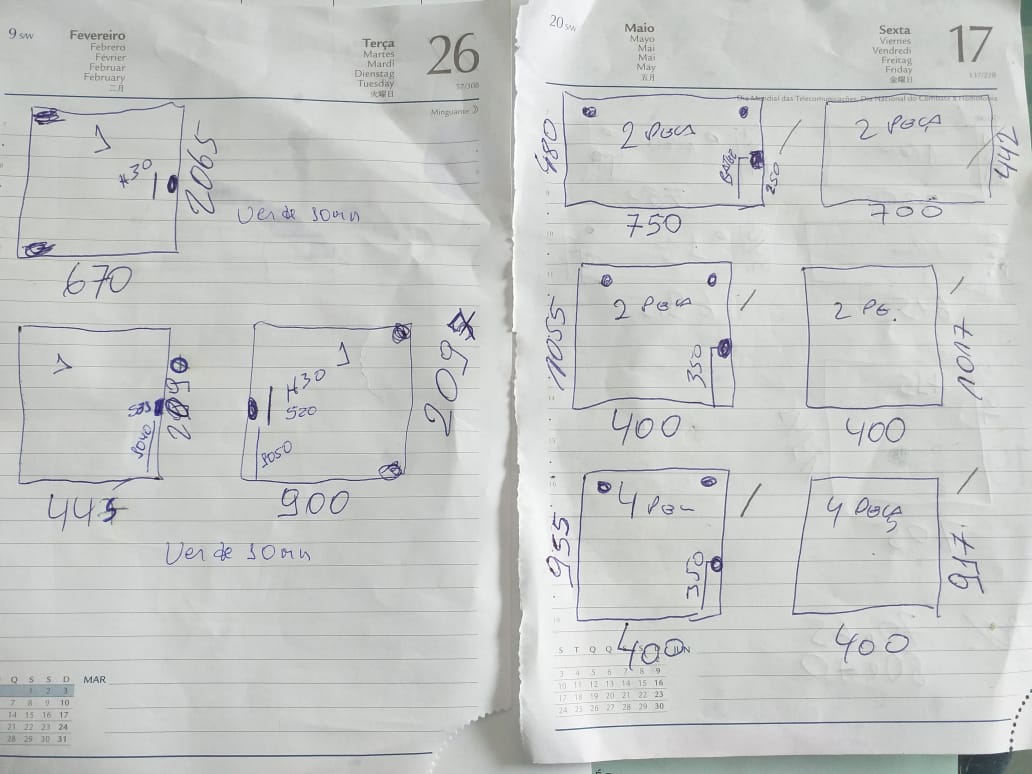 9 SW
Fevereiro
Febrero
Février
Februar
February
二月
Terça
Martes
Mardi
Dienstag
Tuesday
火曜日
26
57/308
Minguante
1
H30
2065
670
Verde 10mn
1
1040
445
1
H30
520
1050
209
900
Verde 10mn
Q S S D
1 2 3
7 8 9 10
14 15 16 17
21 22 23 24
28 29 30 31
MAR
20 SW
Maio
Mayo
Mai
Mai
May
五月
Sexta
Viernes
Vendredi
Freitag
Friday
金曜日
17
137/228
Dia Mundial das Telecomunicações, Dia Nacional do Combate à Homofobia
480
2 PECA
250
750
2 PECA
442
700
1055
2 PECA
350
400
2 PE.
1017
400
955
4 PEC
350
400
4 PEÇA
917
400
S T Q Q S S D
JUN
3 4 5 6 7 8 9
10 11 12 13 14 15 16
17 18 19 20 21 22 23
24 25 26 27 28 29 30